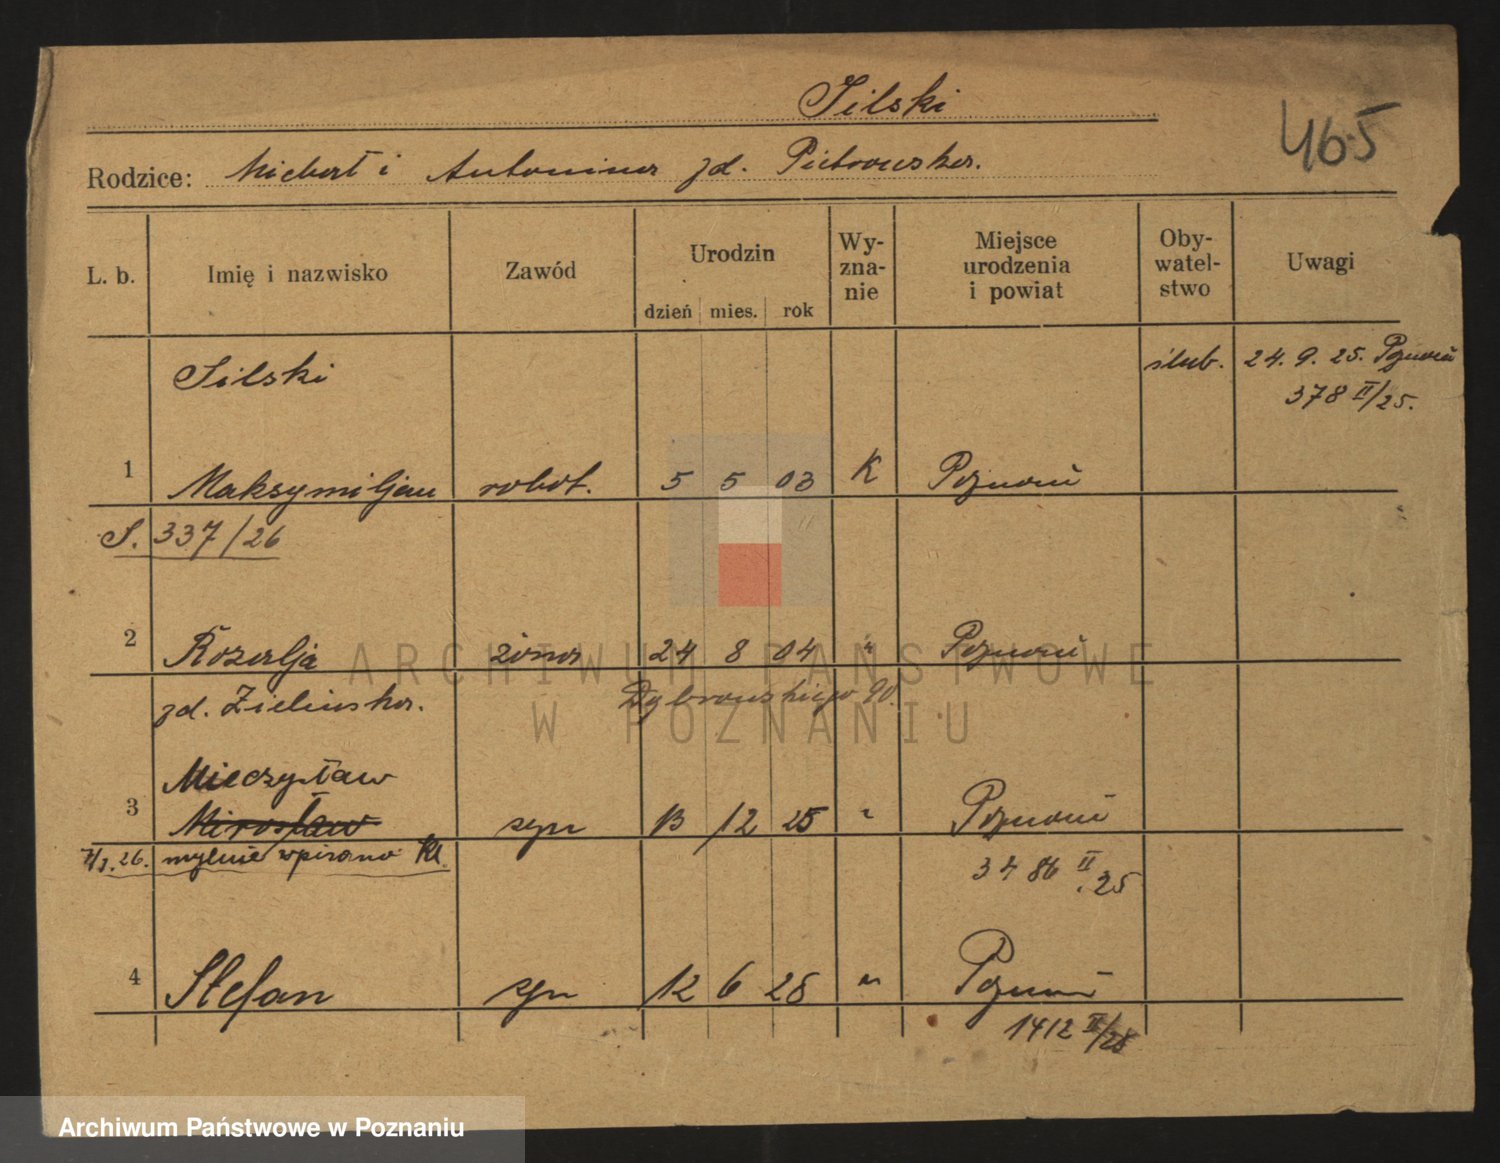 Silski
465
Rodzice: Michał i Antonina zd. Piotrowska.
L. b. Imię i nazwisko Zawód Urodzin dzień mies. rok Wy-zna-nie Miejsce urodzenia i powiat Oby-watel-stwo Uwagi
Silski ślub. 24. 9. 25. Poznań
378 II/25.
1 Maksymiljan robot. 5 5 03 K Poznań
S. 337/26
2 Rozalja żona 24 8 04 " Poznań
zd. Zielińska. Dąbrowskiego 90.
Mieczysław
3 Mirosław syn 13 12 25 " Poznań
7/1.26. mylnie wpisano Kl. 3486 II.25
4 Stefan syn 12 6 28 " Poznań
1412 II/28
ARCHIWUM PAŃSTWOWE
W POZNANIU
Archiwum Państwowe w Poznaniu